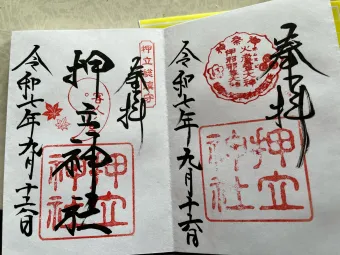 奉拝
押立神社
令和七年九月十六日
押立神社
奉拝
火産霊大神
令和七年九月十六日
押立神社